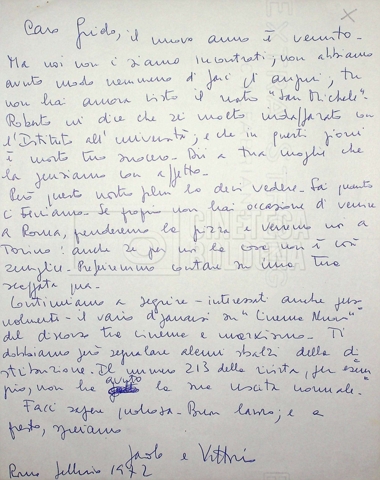 Caro Guido, il nuovo anno è venuto.
Ma noi non ci siamo incontrati, non abbiamo
avuto modo nemmeno di farci gli auguri, tu
non hai ancora visto il nostro "San Michele".
Roberto mi dice che sei molto indaffarato con
l'Istituto all'università, e che in questi giorni
è morto tuo suocero. Dì a tua moglie che
la pensiamo con affetto.
Però questo nostro film lo devi vedere. Fai quanto
ci teniamo. Se proprio non hai occasione di venire
a Roma, prenderemo la pizza e verremo noi a
Torino: anche se per noi la cosa non è così
semplice. Preferiremmo contare su una tua
scappata qua.
Continuiamo a seguire - interessati anche
- il vario di "Cinema Nuovo"
del discorso tra cinema e marxismo. Ti
dobbiamo già segnalare alcuni sbalzi della di=
stribuzione. Il numero 213 della rivista, per esem=
pio, non ha avuto la sua uscita normale.
Facci sapere qualcosa. Buon lavoro; e a
presto, speriamo
Paolo e Vittorio
Roma febbraio 1972
CINETECA
BOLOGNA